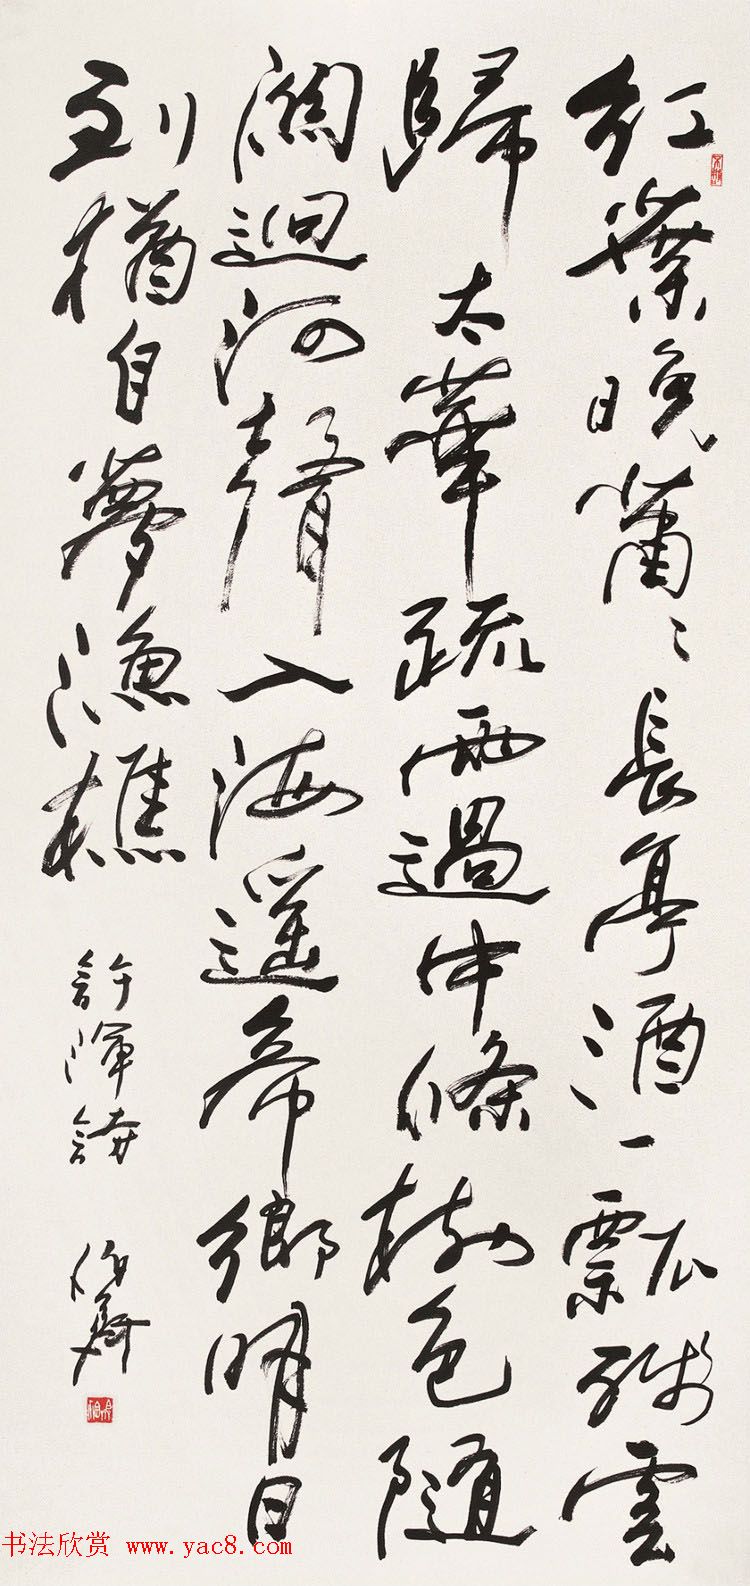 紅葉晚蕭〻長亭酒一瓢殘雲
歸太華疏雨過中條樹色隨
關迥河聲入海遙帝鄉明日
到猶自夢漁樵
許渾詩
书法欣赏 www.yac8.com